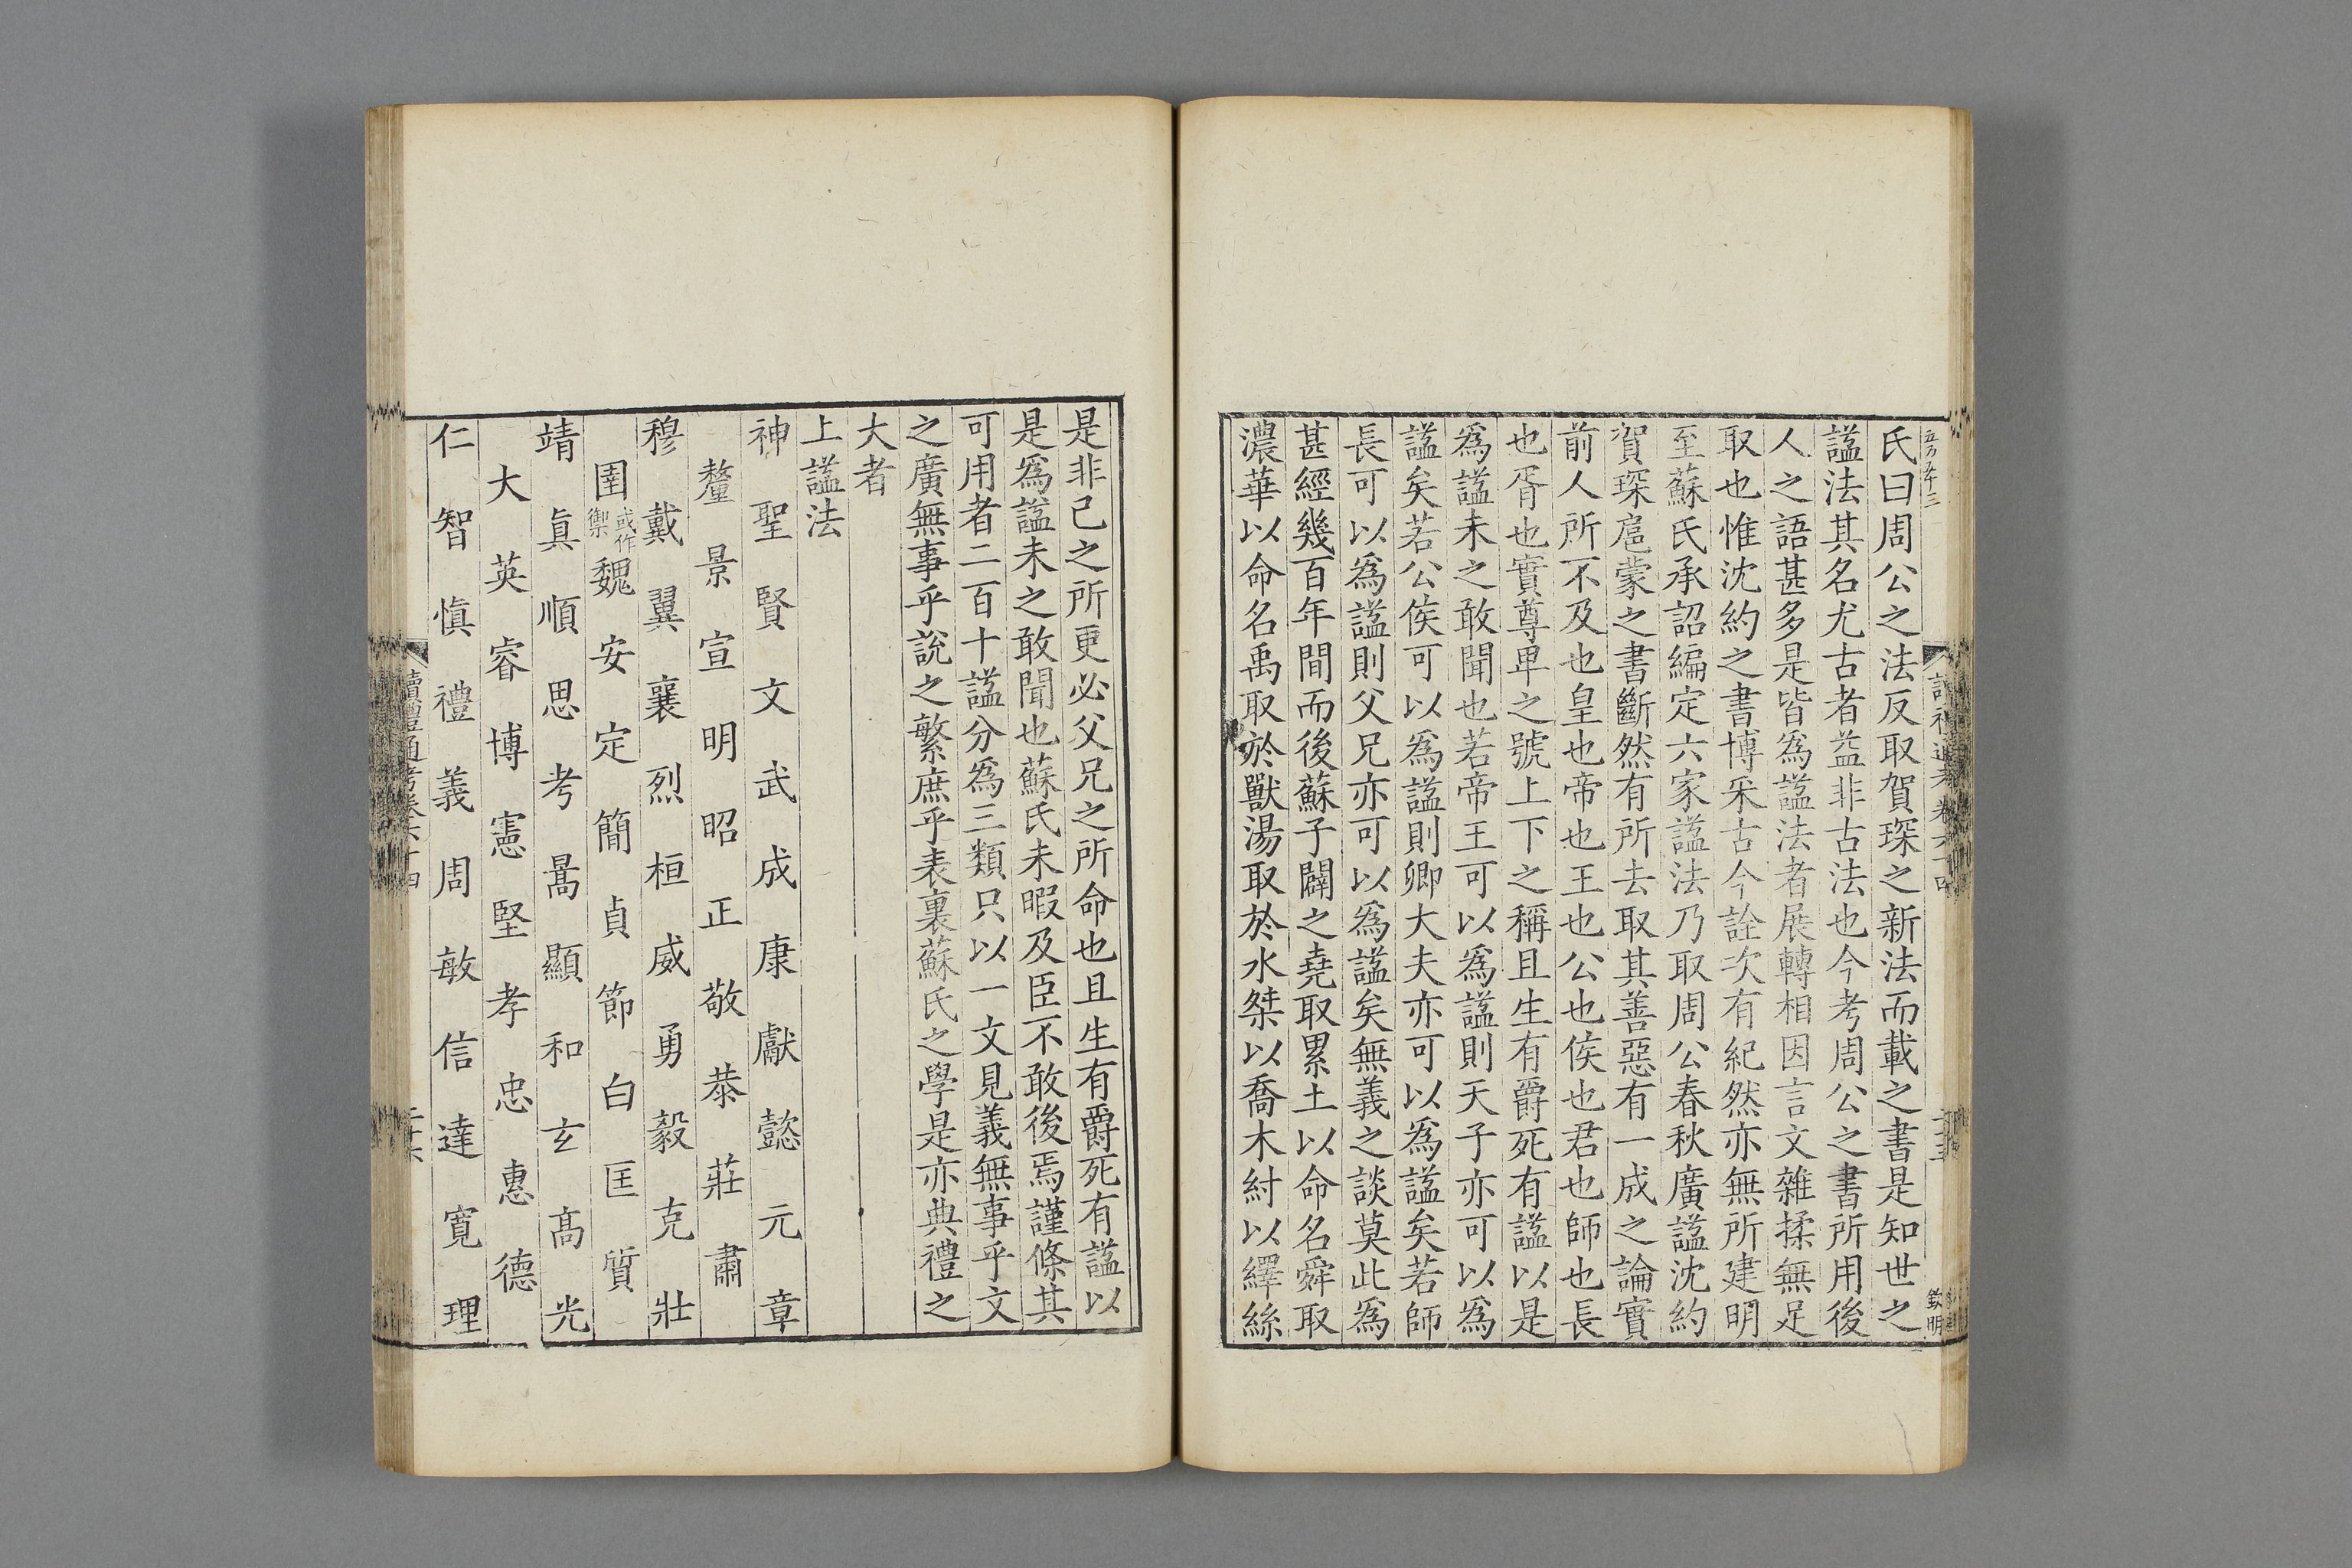 氏曰周公之法反取賀琛之新法而載之書是知世之
諡法其名尤古者益非古法也今考周公之書所用後
人之語甚多是皆爲諡法者展轉相因言文雜揉無足
取也惟沈約之書博采古今詮次有紀然亦無所建明
至蘇氏承詔編定六家諡法乃取周公春秋廣諡沈約
賀琛扈蒙之書斷然有所去取其善惡有一成之論實
前人所不及也皇也帝也王也公也侯也君也師也長
也胥也實尊卑之號上下之稱且生有爵死有諡以是
爲諡未之敢聞也若帝王可以爲諡則天子亦可以爲
諡矣若公侯可以爲諡則卿大夫亦可以爲諡矣若師
長可以爲諡則父兄亦可以爲諡矣無義之談莫此爲
甚經幾百年間而後蘇子闢之堯取累土以命名舜取
濃華以命名禹取於獸湯取於水桀以喬木紂以繹絲
是非己之所更必父兄之所命也且生有爵死有諡以
是爲諡未之敢聞也蘇氏未暇及臣不敢後焉謹條其
可用者二百十諡分爲三類只以一文見義無事乎文
之廣無事乎說之繁庶乎表裏蘇氏之學是亦典禮之
大者
上諡法
神聖賢文武成康獻懿元章
釐景宣明昭正敬恭莊肅
穆戴翼襄烈桓威勇毅克壯
圉或作禦魏安定簡貞節白匡質
靖眞順思考暠顯和玄高光
大英睿博憲堅孝忠惠德
仁智愼禮義周敏信達寬理
讀禮通考卷六十四
二十六